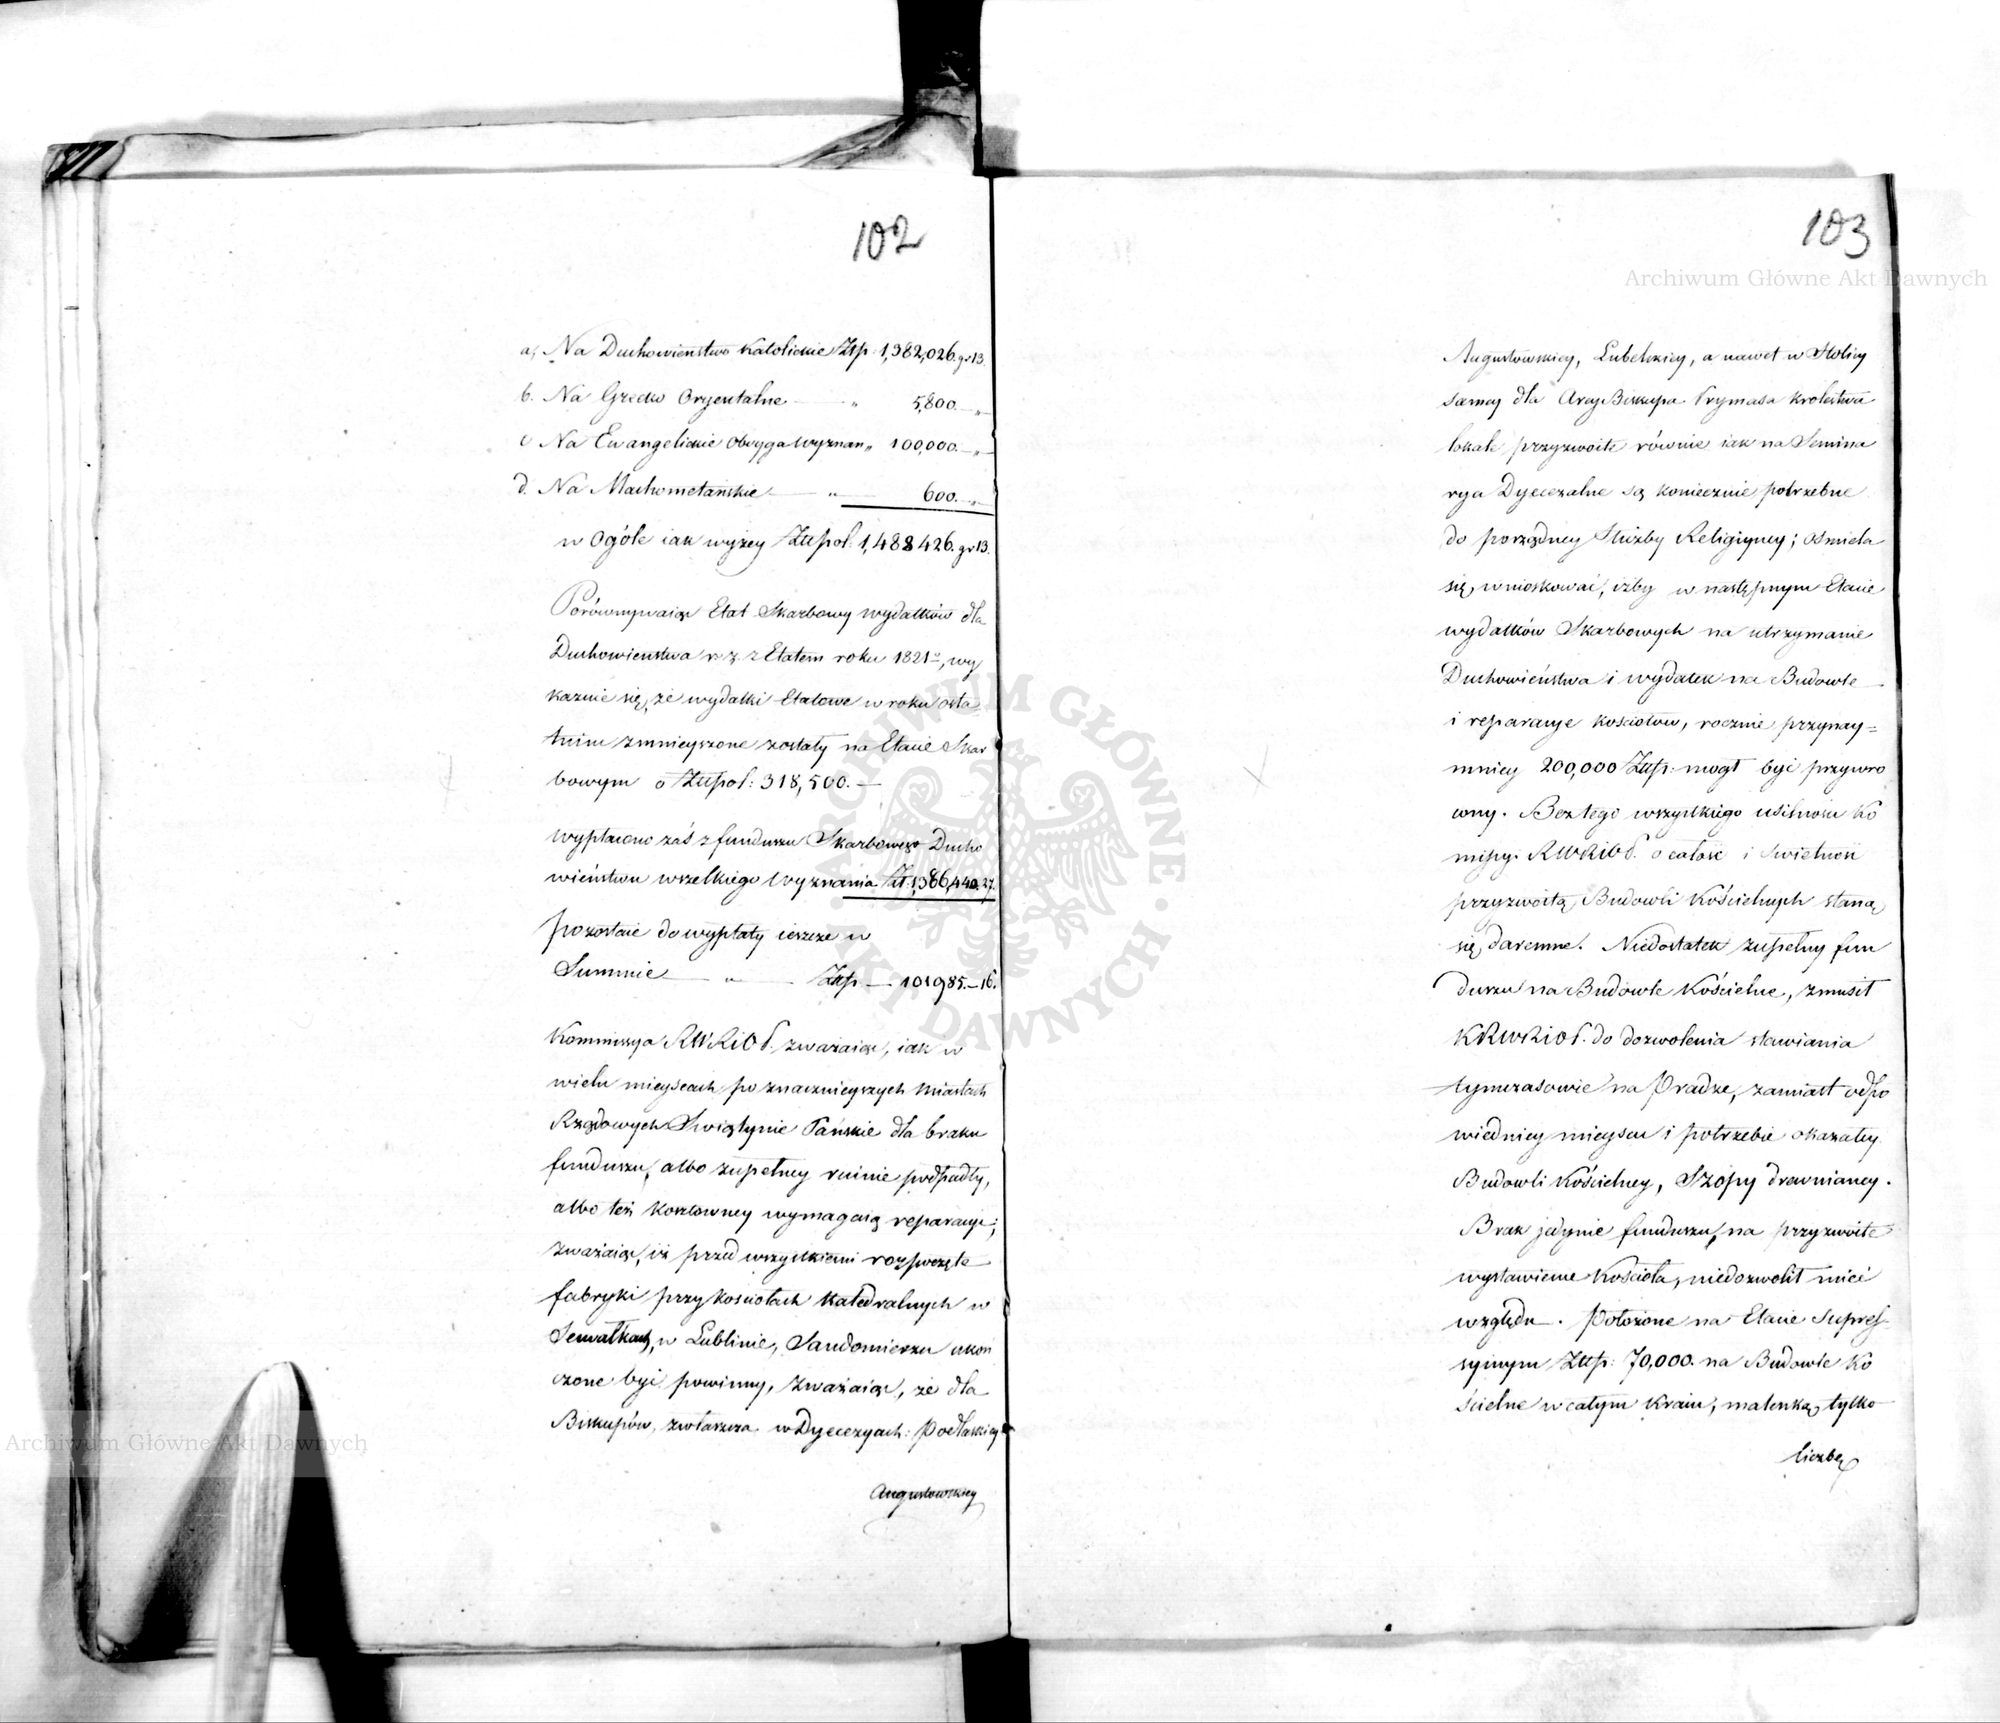 102
a, Na Duchowieństwo Katolickie Złp. 1,382,026. gr 13.
b. Na Grecko Oryentalne — „ 5,800. — „
c Na Ewangelickie Obojga Wyznan „ 100,000. — „
d. Na Machometańskie — „ — 600. — „
w Ogóle iak wyżey Złłpol: 1,488426. gr 13.
Porównywaiąc Etat Skarbowy wydatków dla
Duchowieństwa z Etatem roku 1821º, wy
kazuie się, że wydatki Etatowe w roku osta=
tnim zmnieyszone zostały na Etacie Skar
bowym o Złłpol: 318,500. —
Wypłacono zaś z funduszu Skarbowego Ducho
wieństwu wszelkiego Wyznania Zł: 1,386,440.27.
pozostaie do wypłaty ieszcze w
Summie — „ — Złp. — 101985. — 16.
Kommissya RWRiOP. zważaiąc, iak w
wielu mieyscach po znacznieyszych Miastach
Rządowych Swiątynie Pańskie dla braku
funduszu, albo zupełney ruinie podpadły,
albo też kosztowney wymagaią reparacyi;
zważaiąc, iż przed wszystkiemi rozpoczęte
fabryki przy kościołach Katedralnych w
Seywałkach, w Lublinie, Sandomierzu ukoń
czone być powinny, zważaiąc, że dla
Biskupów, zwłaszcza w Dyecezyach: Podlaskiey
Augustowskiey
103
Augustowskiey, Lubelskiey, a nawet w Stolicy
samey dla Arcy Biskupa Prymasa Królestwa
lokale przyzwoite równie iak na Semina
rya Dyecezalne są koniecznie potrzebne
do porządney Służby Religiyney; ośmiela
się wnioskować, iżby w następnym Etacie
wydatków Skarbowych na utrzymanie
Duchowieństwa i wydatek na Budowle
i reparacye kościołów, rocznie przynay=
mniey 200,000 Złłp: mógł być przywró
cony. Bez tego wszystkiego usilności Ko
missyi RWRiOP. o całość i świetność
przyzwoitą Budowli Kościelnych staną
się daremne. Niedostatek zupełny fun
duszu na Budowle Kościelne, zmusił
KRWRiOP. do dozwolenia stawiania
tymczasowie na Pradze, zamiast odpo
wiedniey mieyscu i potrzebie okazałey
Budowli Kościelney, Szopy drewnianey.
Brak jedynie funduszu, na przyzwoite
wystawienie Kościoła, niedozwolił mieć
względu. Położone na Etacie Supres=
syinym Złłp: 70,000. na Budowle Ko
ścielne w całym Kraiu, maleńką tylko
liczbę
Archiwum Główne Akt Dawnych
Archiwum Główne Akt Dawnych
ARCHIWUM GŁÓWNE AKT DAWNYCH